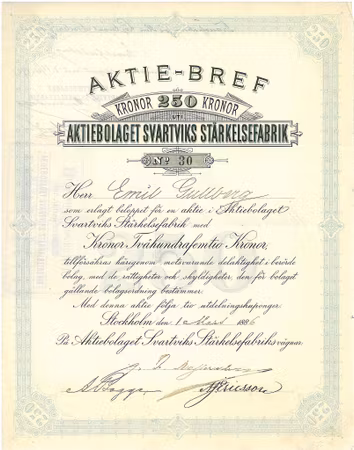 250 250
AKTIE-BREF
KRONOR 250 KRONOR
AKTIEBOLAGET SVARTVIKS STÄRKELSEFABRIK
No 30
Herr Emil Gullberg
som erlagt beloppet för en aktie i Aktiebolaget
Svartviks Stärkelsefabrik med
Kronor Tvåhundrafemtio Kronor,
tillförsäkras härigenom motsvarande delaktighet i berörde
bolag, med de rättigheter och skyldigheter, den för bolaget
gällande bolagsordning bestämmer.
Med denna aktie följa tio utdelningskuponger.
Stockholm den 1 Mars 1886
På Aktiebolaget Svartviks Stärkelsefabriks vägnar:
250 250